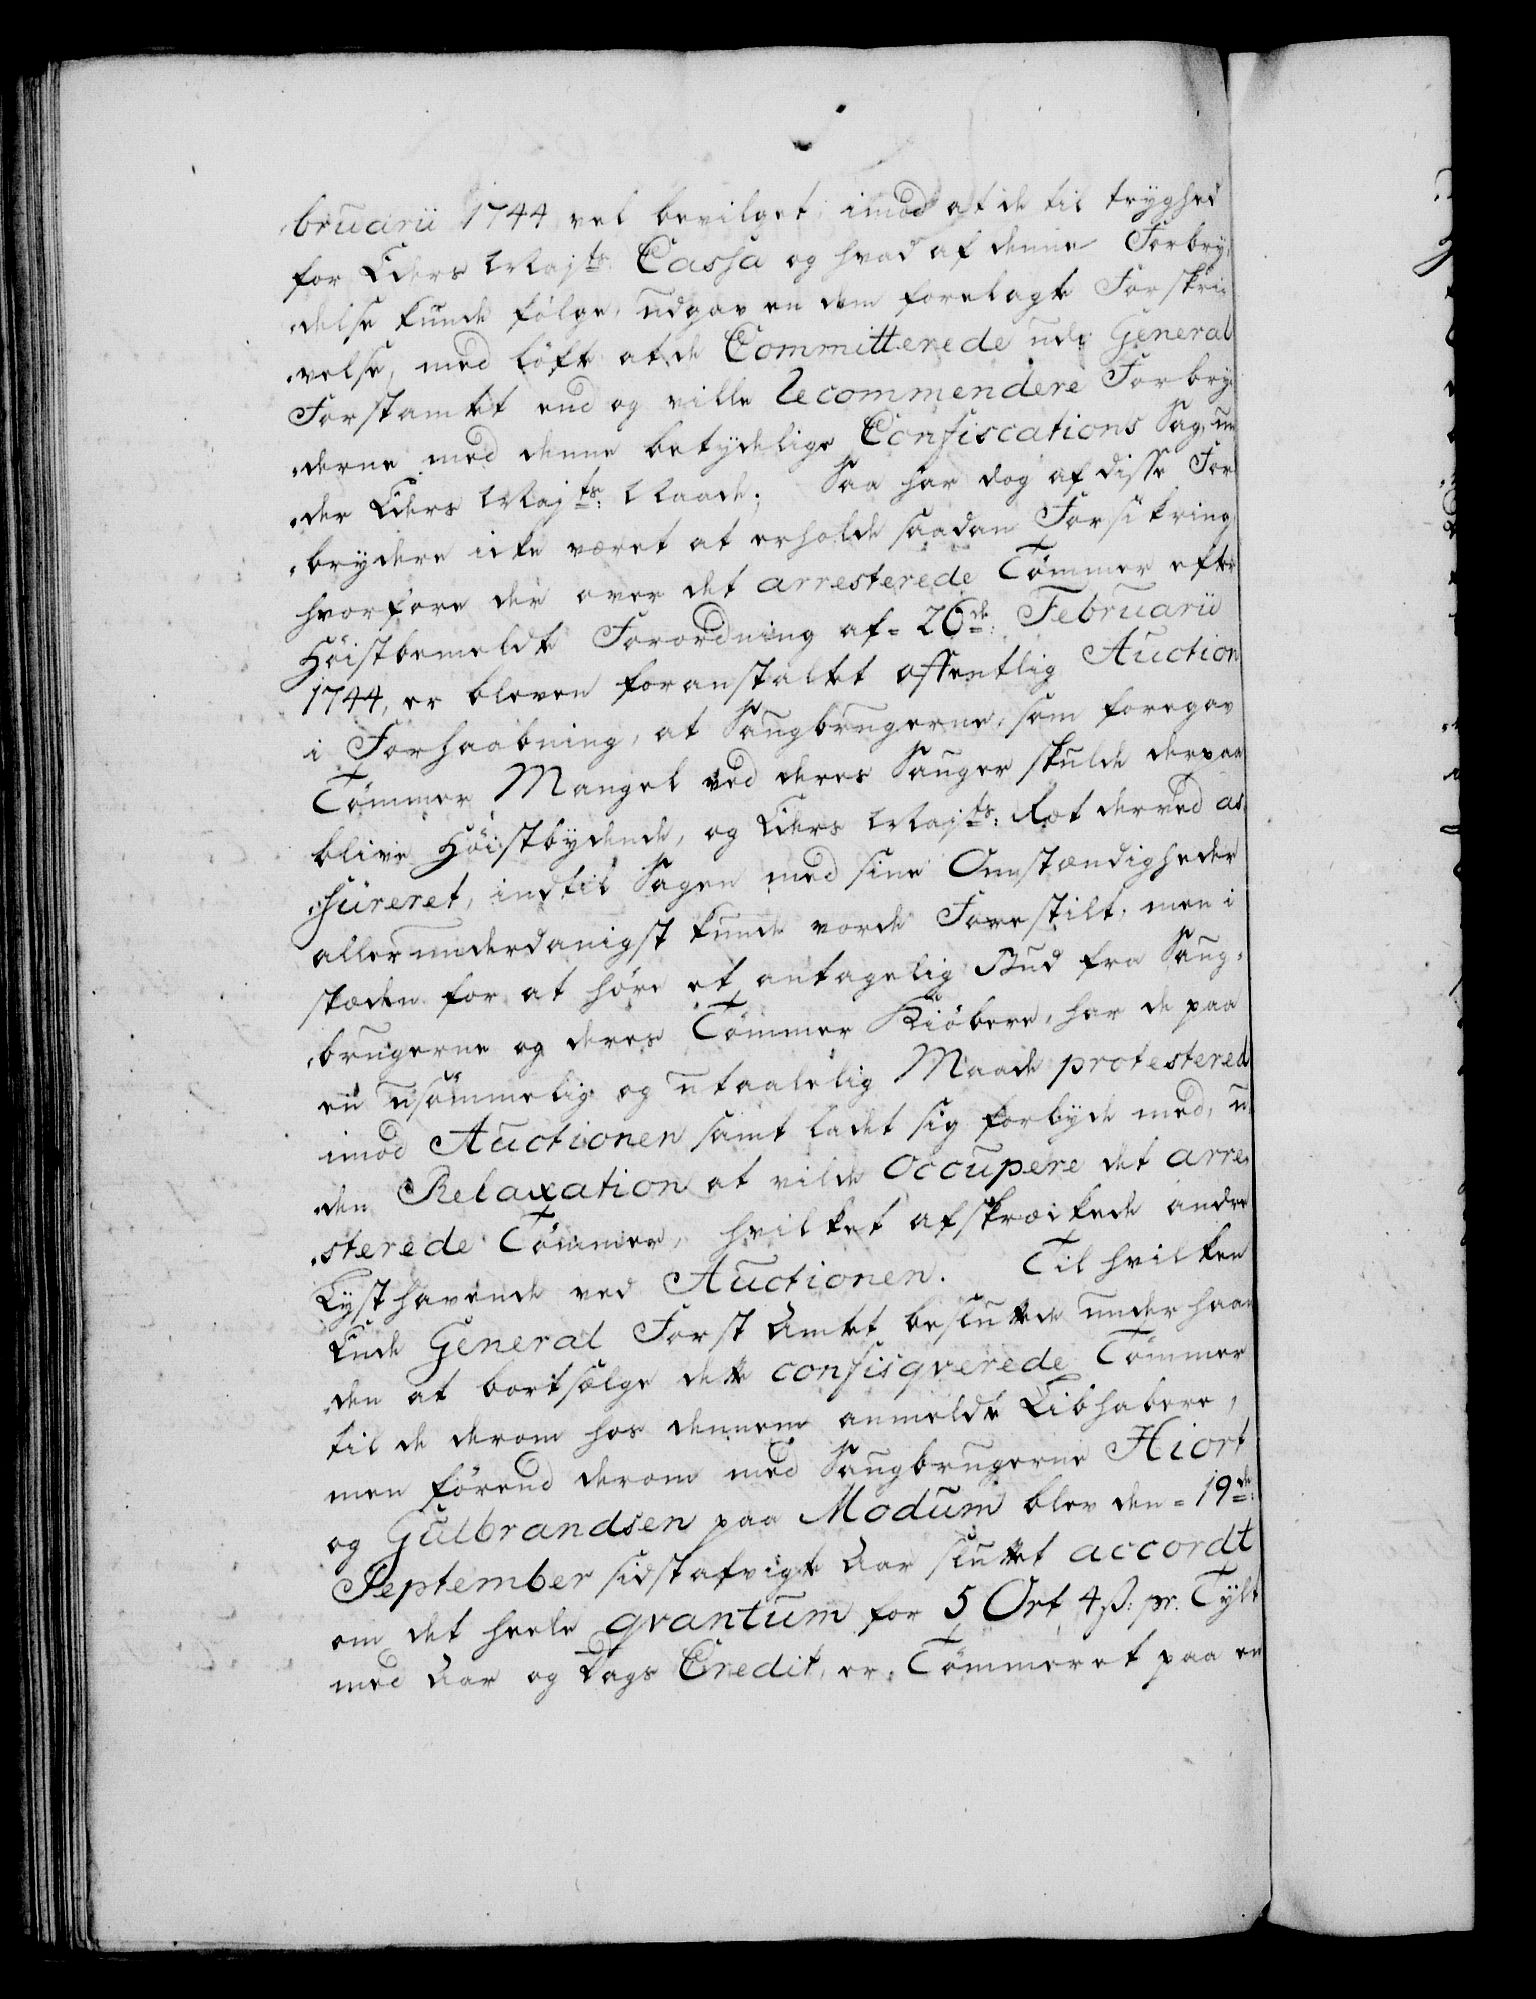 bruarii 1744 vel bevilget, imod at de til tryghed
for Eders Maj:ts Cassa og hvad af denne Forbry-
delse kunde følge, udgav en dem forelagte Forskri-
velse, med løfte at de Committerede udi General
Forstamtet end og ville Recommendere Forbry-
derne med denne betydelige Confiscations Sag, un-
der Eders Maj:ts Naade. Saa har dog af disse For-
brydere icke været at erholde saadan Forsikring,
hvorfore der over det arresterede Tömmer efter
Høistbemeldte Forordning af 26de: Februarii
1744, er bleven foranstaltet offentlig Auction
i Forhaabning, at Saugbrugerne, som foregav
Tömmer Mangel ved deres Sauger skulde derpaa
blive Høistbydende, og Eders Maj:ts: Ræt derved as-
sureret, indtil Sagen med sine Omstændigheder
allerunderdanigst kunde vorde Forestilt, men i
stæden for at høre et antagelig Bud fra Saug-
brugerne og deres Tömmer Kiöbere, har de paa
en usömmelig og utaalelig Maade protestered
imod Auctionen samt ladet sig forlyde med, u-
den Relaxation at vilde Occupere det arre-
sterede Tömmer, hvilket afskrækkede andre
Lysthavende ved Auctionen. Til hvilken
Ende General Forst Amtet besluttede under haan-
den at bortsælge dette confisqverede Tömmer
til de derom hos dennem anmeldte Liebhabere,
men förend derom med Saugbrugerne Hiort
og Gulbrandsen paa Modum blev den 19de:
September sidstafvigte Aar sluttet accordt
om det heele qvantum for 5 Ort 4 ß: pr. Tylt
med Aar og Dags Credit, er Tömmeret paa en